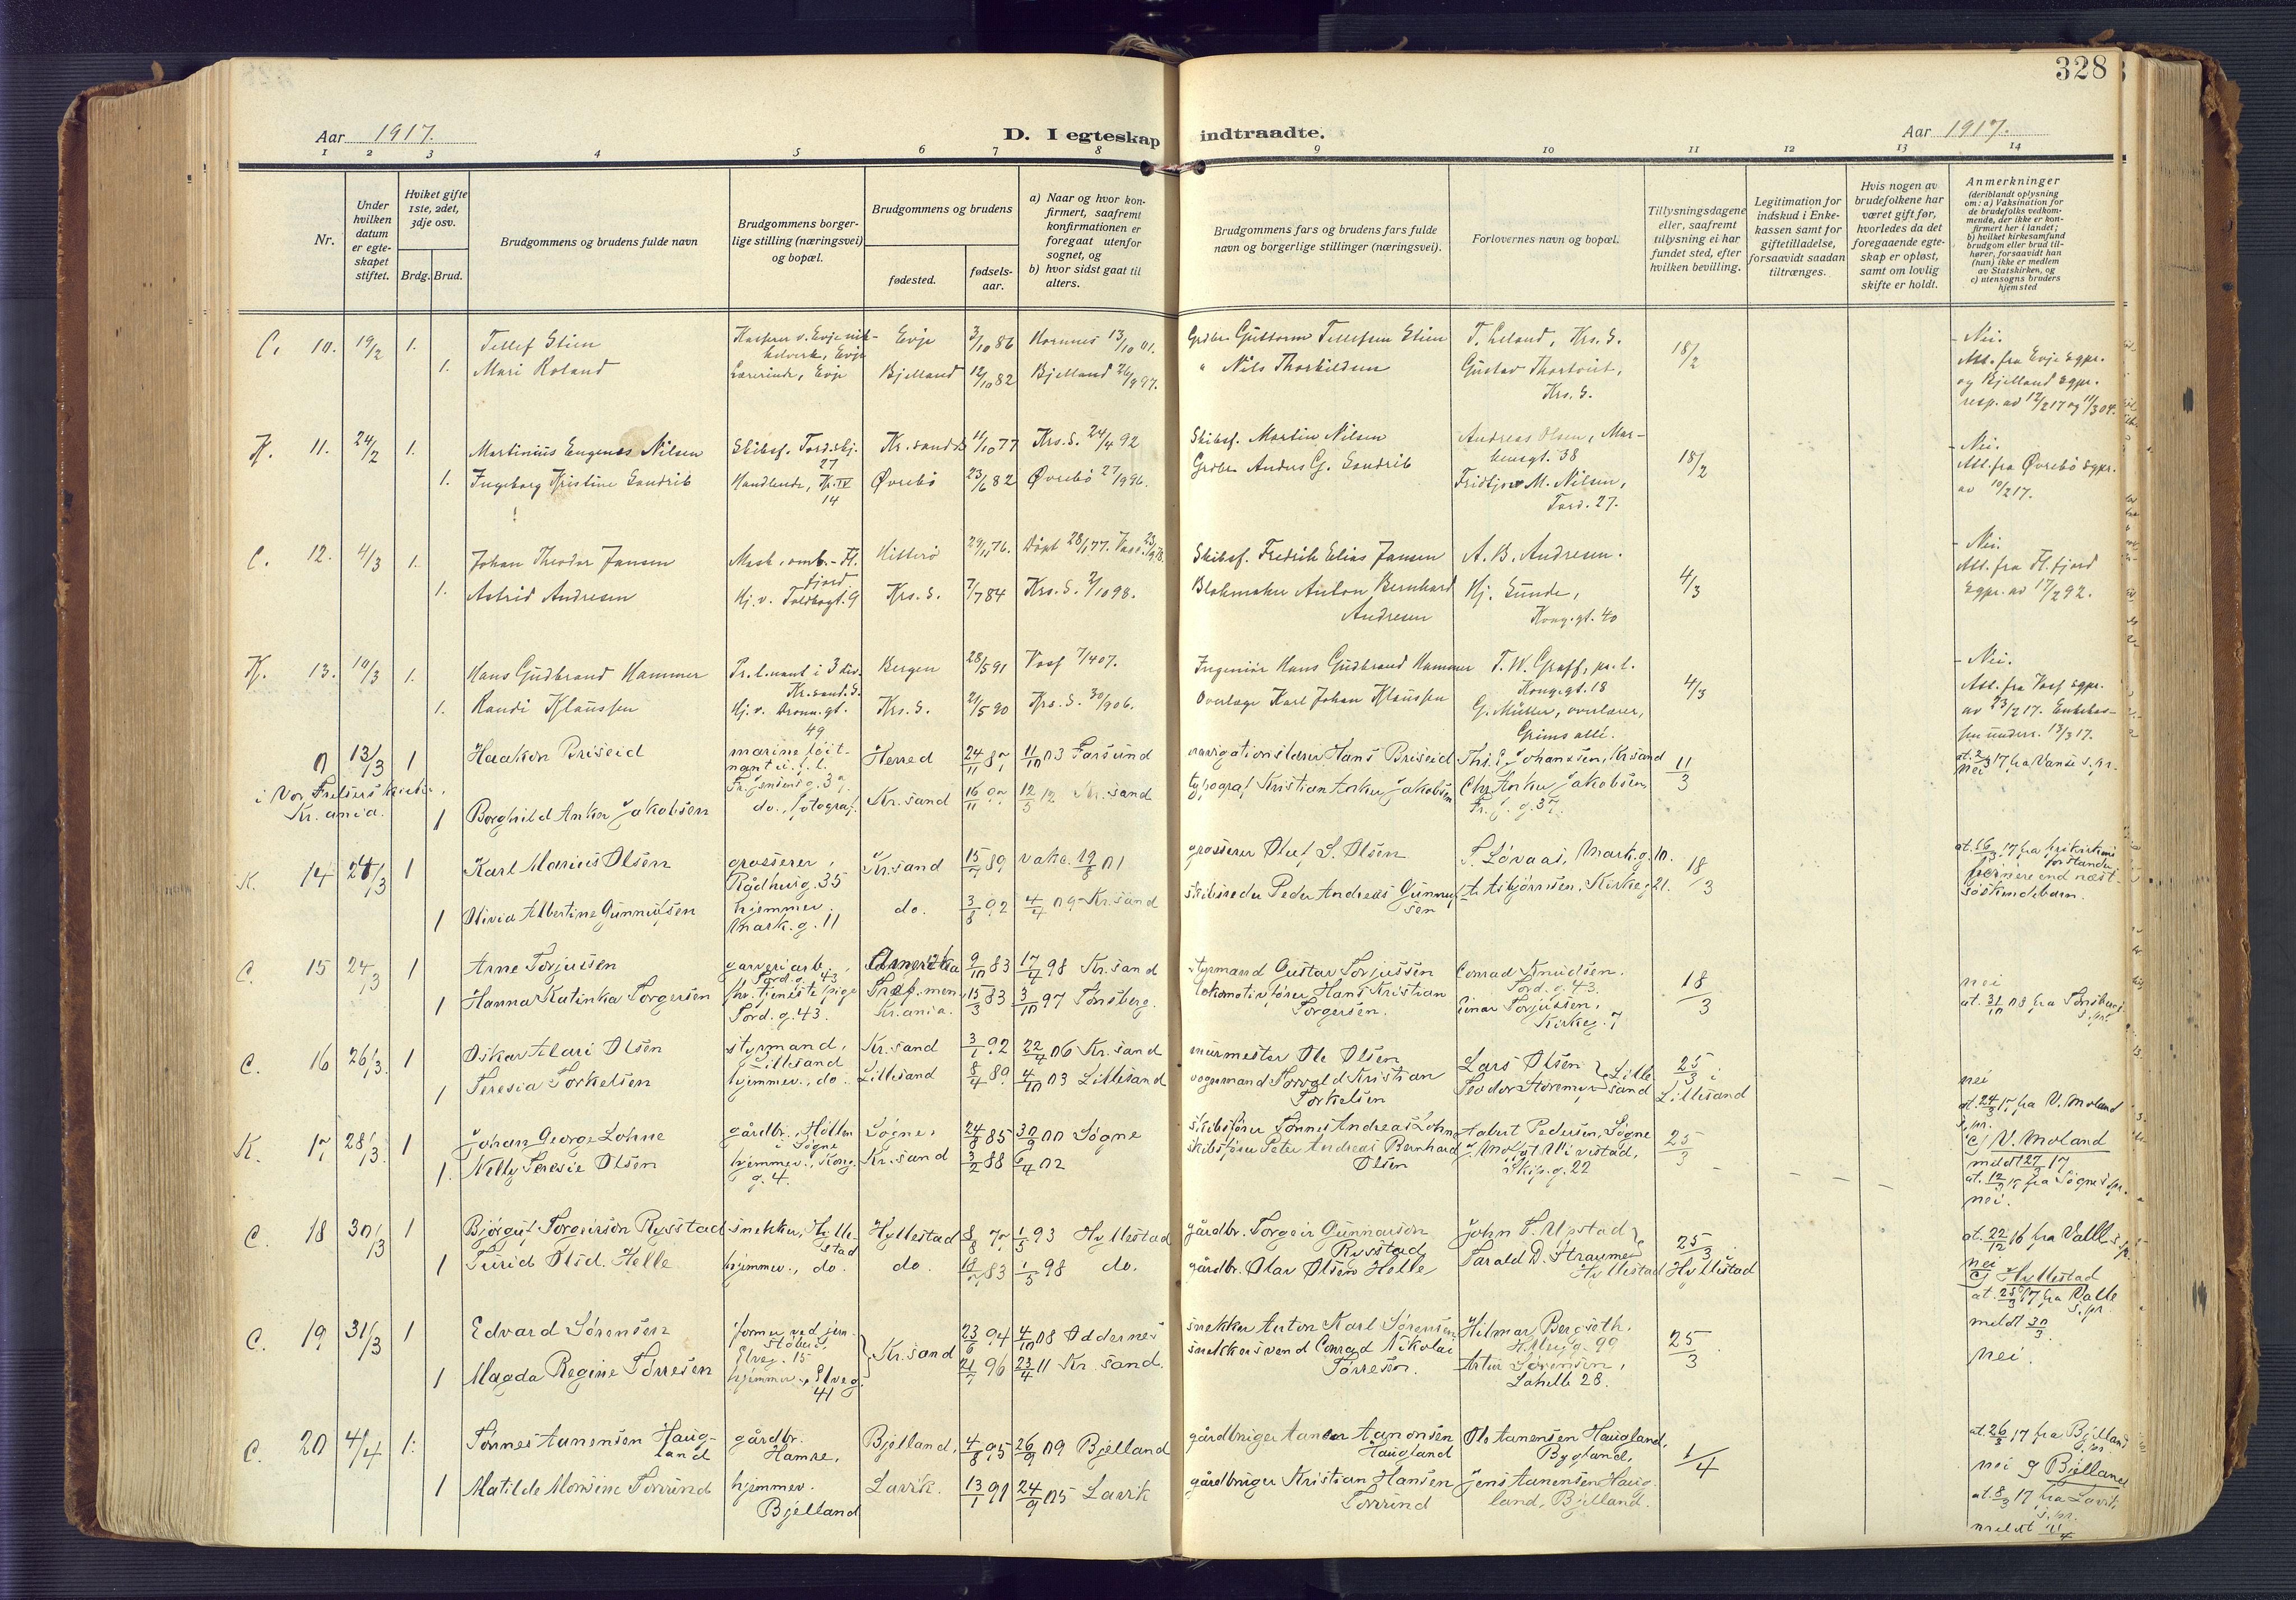 328
Aar 1917.
D. I egteskap indtraadte.
Aar 1917.
1 2 3 4 5 6 7 8 9 10 11 12 13 14
Nr.
Under hvilken datum er egte-skapet stiftet.
Hvilket gifte 1ste, 2det, 3dje osv.
Brdg. Brud.
Brudgommens og brudens fulde navn
Brudgommens borger-lige stilling (næringsvei) og bopæl.
Brudgommens og brudens
fødested.
fødsels-aar.
a) Naar og hvor kon-firmert, saafremt konfirmationen er foregaat utenfor sognet, og
b) hvor sidst gaat til alters.
Brudgommens fars og brudens fars fulde navn og borgerlige stillinger (næringsvei).
Forlovernes navn og bopæl.
Tillysningsdagene eller, saafremt tillysning ei har fundet sted, efter hvilken bevilling.
Legitimation for indskud i Enke-kassen samt for giftetilladelse, forsaavidt saadan tiltrænges.
Hvis nogen av brudefolkene har været gift før, hvorledes da det foregaaende egte-skap er opløst, samt om lovlig skifte er holdt.
Anmerkninger
(deriblandt oplysning om: a) Vaksination for de brudefolks vedkom-mende, der ikke er kon-firmert her i landet; b) hvilket kirkesamfund brudgom eller brud til-hører, forsaavidt han (hun) ikke er medlem av Statskirken, og c) utensogns bruders hjemsted
C. 10. 19/2 1. Tellef Stien Kasserer v. Evje nik-kelverk, Evje Evje 3/10 86 Hornnes 13/10 01. Grdbr. Guttorm Tellefsen Stien T. Leland, Krs. S. 18/2 - Nei.
1. Mari Roland Lærerinde, Evje Bjelland 12/10 82 Bjelland 26/9 97. " Nils Thorkildsen Gustav Thortveit, Krs. S. Att. fra Evje sgpr. og Bjelland sgpr. resp. av 12/2 17 og 11/3 04.
K. 11. 24/2 1. Martinius Eugenes Nilsen Skibsf. Tord.skj. 27 Kr.sand S 11/10 77 Krs. S. 24/4 92 Skibsf. Martin Nilsen Andreas Olsen, Mar-kensgt. 38 18/2 - Nei.
1. Ingeborg Kristine Sandrib Handlende, Kr. IV 14 Øvrebö 23/6 82 Øvrebö 27/9 96. Grdbr. Anders G. Sandrib Fridtjov M. Nilsen, Tord. 27. Att. fra Øvrebö sgpr. av 10/2 17.
C. 12. 4/3 1. Johan Theodor Jansen Mask. omb. - Fl. fjord Hitterö 29/11 76. Döpt 28/1 77. Skibsf. Fredrik Elias Jansen A. B. Andresen. 4/3 - Nei.
1. Astrid Andresen Hj. v. Toldbogt. 9 Krs. S. 7/7 84 Krs. S. 2/10 98. Blokmaker Anton Bernhard Andresen Hj. Sunde, Kong. gt. 40 Att. fra Fl. fjord sgpr. av 17/2 92.
K. 13. 10/3 1. Hans Gudbrand Hammer Pr. l.nant i 3 div. Kr.sand. S. Bergen 28/5 91 Voss 7/4 07. Ingeniör Hans Gudbrand Hammer T. W. Graff, pr. l. Kong. gt. 18 4/3 - Nei.
1. Randi Klaussen Hj. v. Dronn. gt. 49 Krs. S. 21/5 90 Krs. S. 30/9 06. Overlæge Karl Johan Klaussen G. Müller, overlærer, Grims allé. Att. fra Voss sgpr. av 23/2 17. Enkekas-sen underr. 13/3 17.
13/3 1 Haakon Briseid marine löit-nant Herred 24/11 87 11/10 03 Farsund navigationslærer Hans Briseid Ths. E. Johanssen, Kr.sand 11/3 fra Vanse s.pr.
i Vor Frelsers kirke, Kr.ania. 1 Borghild Anker Jakobsen do., fotograf. Kr.sand 12/5 12 Kr.sand typograf Kristian Anker Jakobsen Chr. Anker Jakobsen nei
K. 14 24/3 1 Karl Marius Olsen grosserer, Rådhusg. 35 Kr.sand 15/7 89 vaks. 19/8 01 grosserer Oluf S. Olsen S. Løvaas, Mark. g. 10. 18/3 fjernere end næst-søskendebarn.
1 Olivia Albertine Gunnufsen hjemmev. Mark. g. 11 do. 3/8 92 4/4 09 Kr.sand skibsreder Peder Andreas Gunnuf-sen A. Asbjørnsen, Kirkeg. 21.
C. 15 24/3 1 Arne Torjussen garveriarb., Tord. g. 43 Amerika 9/10 83 17/4 98 Kr.sand styrmand Gustav Torjussen Conrad Knudsen. Tord. g. 43. 18/3 nei
1 Hanna Katinka Torgersen fhv. tjenestepige Tord. g. 43. Kr.ania. 15/3 83 3/10 97 Tønsberg. lokomotivfører Hans Kristian Torgersen. Einar Torjussen, Kirkeg. 7 at. 31/10 03 fra Tønsberg s.pr.
C. 16 26/3. 1 Oskar Alari Olsen styrmand, Lillesand Kr.sand 3/1 92 22/4 06 Kr.sand murmester Ole Olsen Lars Olsen 25/3 i Lillesand nei
1 Teresia Torkelsen hjemmev., do. Lillesand 8/4 80 4/10 03 Lillesand vognmand Torvald Kristian Torkelsen Teodor Støremyr Lille-sand at. 24/3 17 fra V. Moland s.pr. c) V. Moland meldt 27/3 17
K. 17 28/3. 1 Johan George Lohne gårdbr., Höllen i Søgne Søgne. 24/8 85 30/9 00 Søgne skibsfører Tønnes Andreas Lohne Habert Pedersen, Søgne 25/3 at. 12/3 17 fra Søgne s.pr.
1. Nelly Teresie Olsen hjemmev., Kong. g. 4. Kr.sand 3/2 88 6/4 02 skibsfører Peter Andreas Bernhard Olsen Skip. g. 22 nei.
C. 18 30/3 1 Bjørgulf Torgeirson Rysstad snekker, Hylle-stad Hyllestad 8/8 77 1/5 93 Hyllestad gårdbr. Torgeir Gunnarson Rysstad John T. Upstad 25/3 i Hyllestad at. 22/12 16 fra Valle s.pr.
1 Turid Olsd. Helle hjemmev., do. do. 19/7 83 1/5 98 do. gårdbr. Olav Olsen Helle Tarald D. Straume Hyllestad nei c) Hyllestad at. 25/3 17 fra Valle s.pr. meldt 30/3.
C. 19 31/3 1 Edvard Sørensen former ved jern-støberi, Elveg. 15 Kr.sand 23/6 94 4/10 08 Oddernes snekker Anton Karl Sørensen Hilmar Bergseth. H. Mejg. 99 25/3 nei.
1 Magda Regine Tørresen hjemmev., Elveg. 41 21/7 96 23/4 11 Kr.sand. snekkersvend Conrad Nikolai Tørresen. Artur Sørensen, Lahelle 28.
C. 20 4/4 1. Tønnes Aanensen Haug-land gårdbr. Hamre, Bjelland, 4/8 95 26/9 09 Bjelland gårdbruger Aanen Aanonsen Haugland Ole Aanensen Haugland, Bygland, 1/4 at. 26/3 17 fra Bjelland s.pr.
1 Matilde Monsine Torrind hjemmev. Bjelland Lavik. 13/1 91 24/9 05 Lavik gårdbruger Kristian Hansen Torrind Jens Aanensen Haug-land, Bjelland. nei c) Bjelland at. 8/3 17 fra Lavik s.pr. meldt 11/4